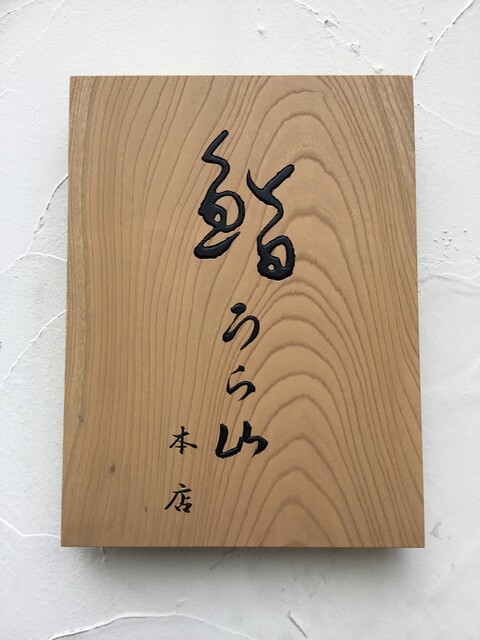 鮨
うら山
本店